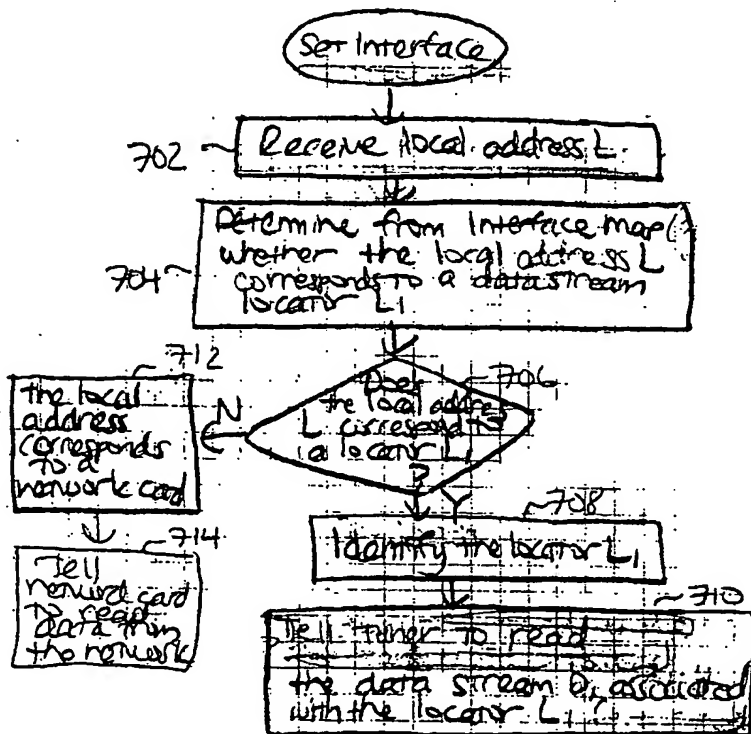 Set Interface
702
Receive local address L
704
Determine from Interface map
whether the local address L
corresponds to a data stream
locator L1
706
Does
the local address
L correspond to
a locator L1
?
N
712
the local
address
corresponds
to a
network card
714
Tell
network card
to read
data from
the network
Y
708
Identify the locator L1
710
Tell tuner to read
the data stream D1 associated
with the locator L1